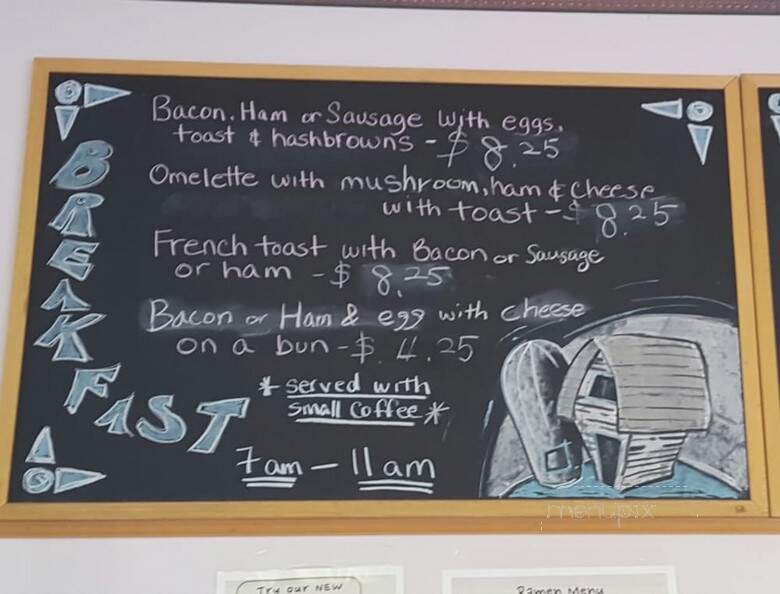 BREAKFAST
Bacon, Ham or Sausage with eggs,
toast & hashbrowns - $ 8.25
Omelette with mushroom, ham & cheese
with toast - $ 8.25
French toast with Bacon or Sausage
or ham - $ 8.25
Bacon or Ham & egg with cheese
on a bun - $ 4.25
* served with
small coffee *
7am - 11am
menupix
Try our NEW
Ramen Menu